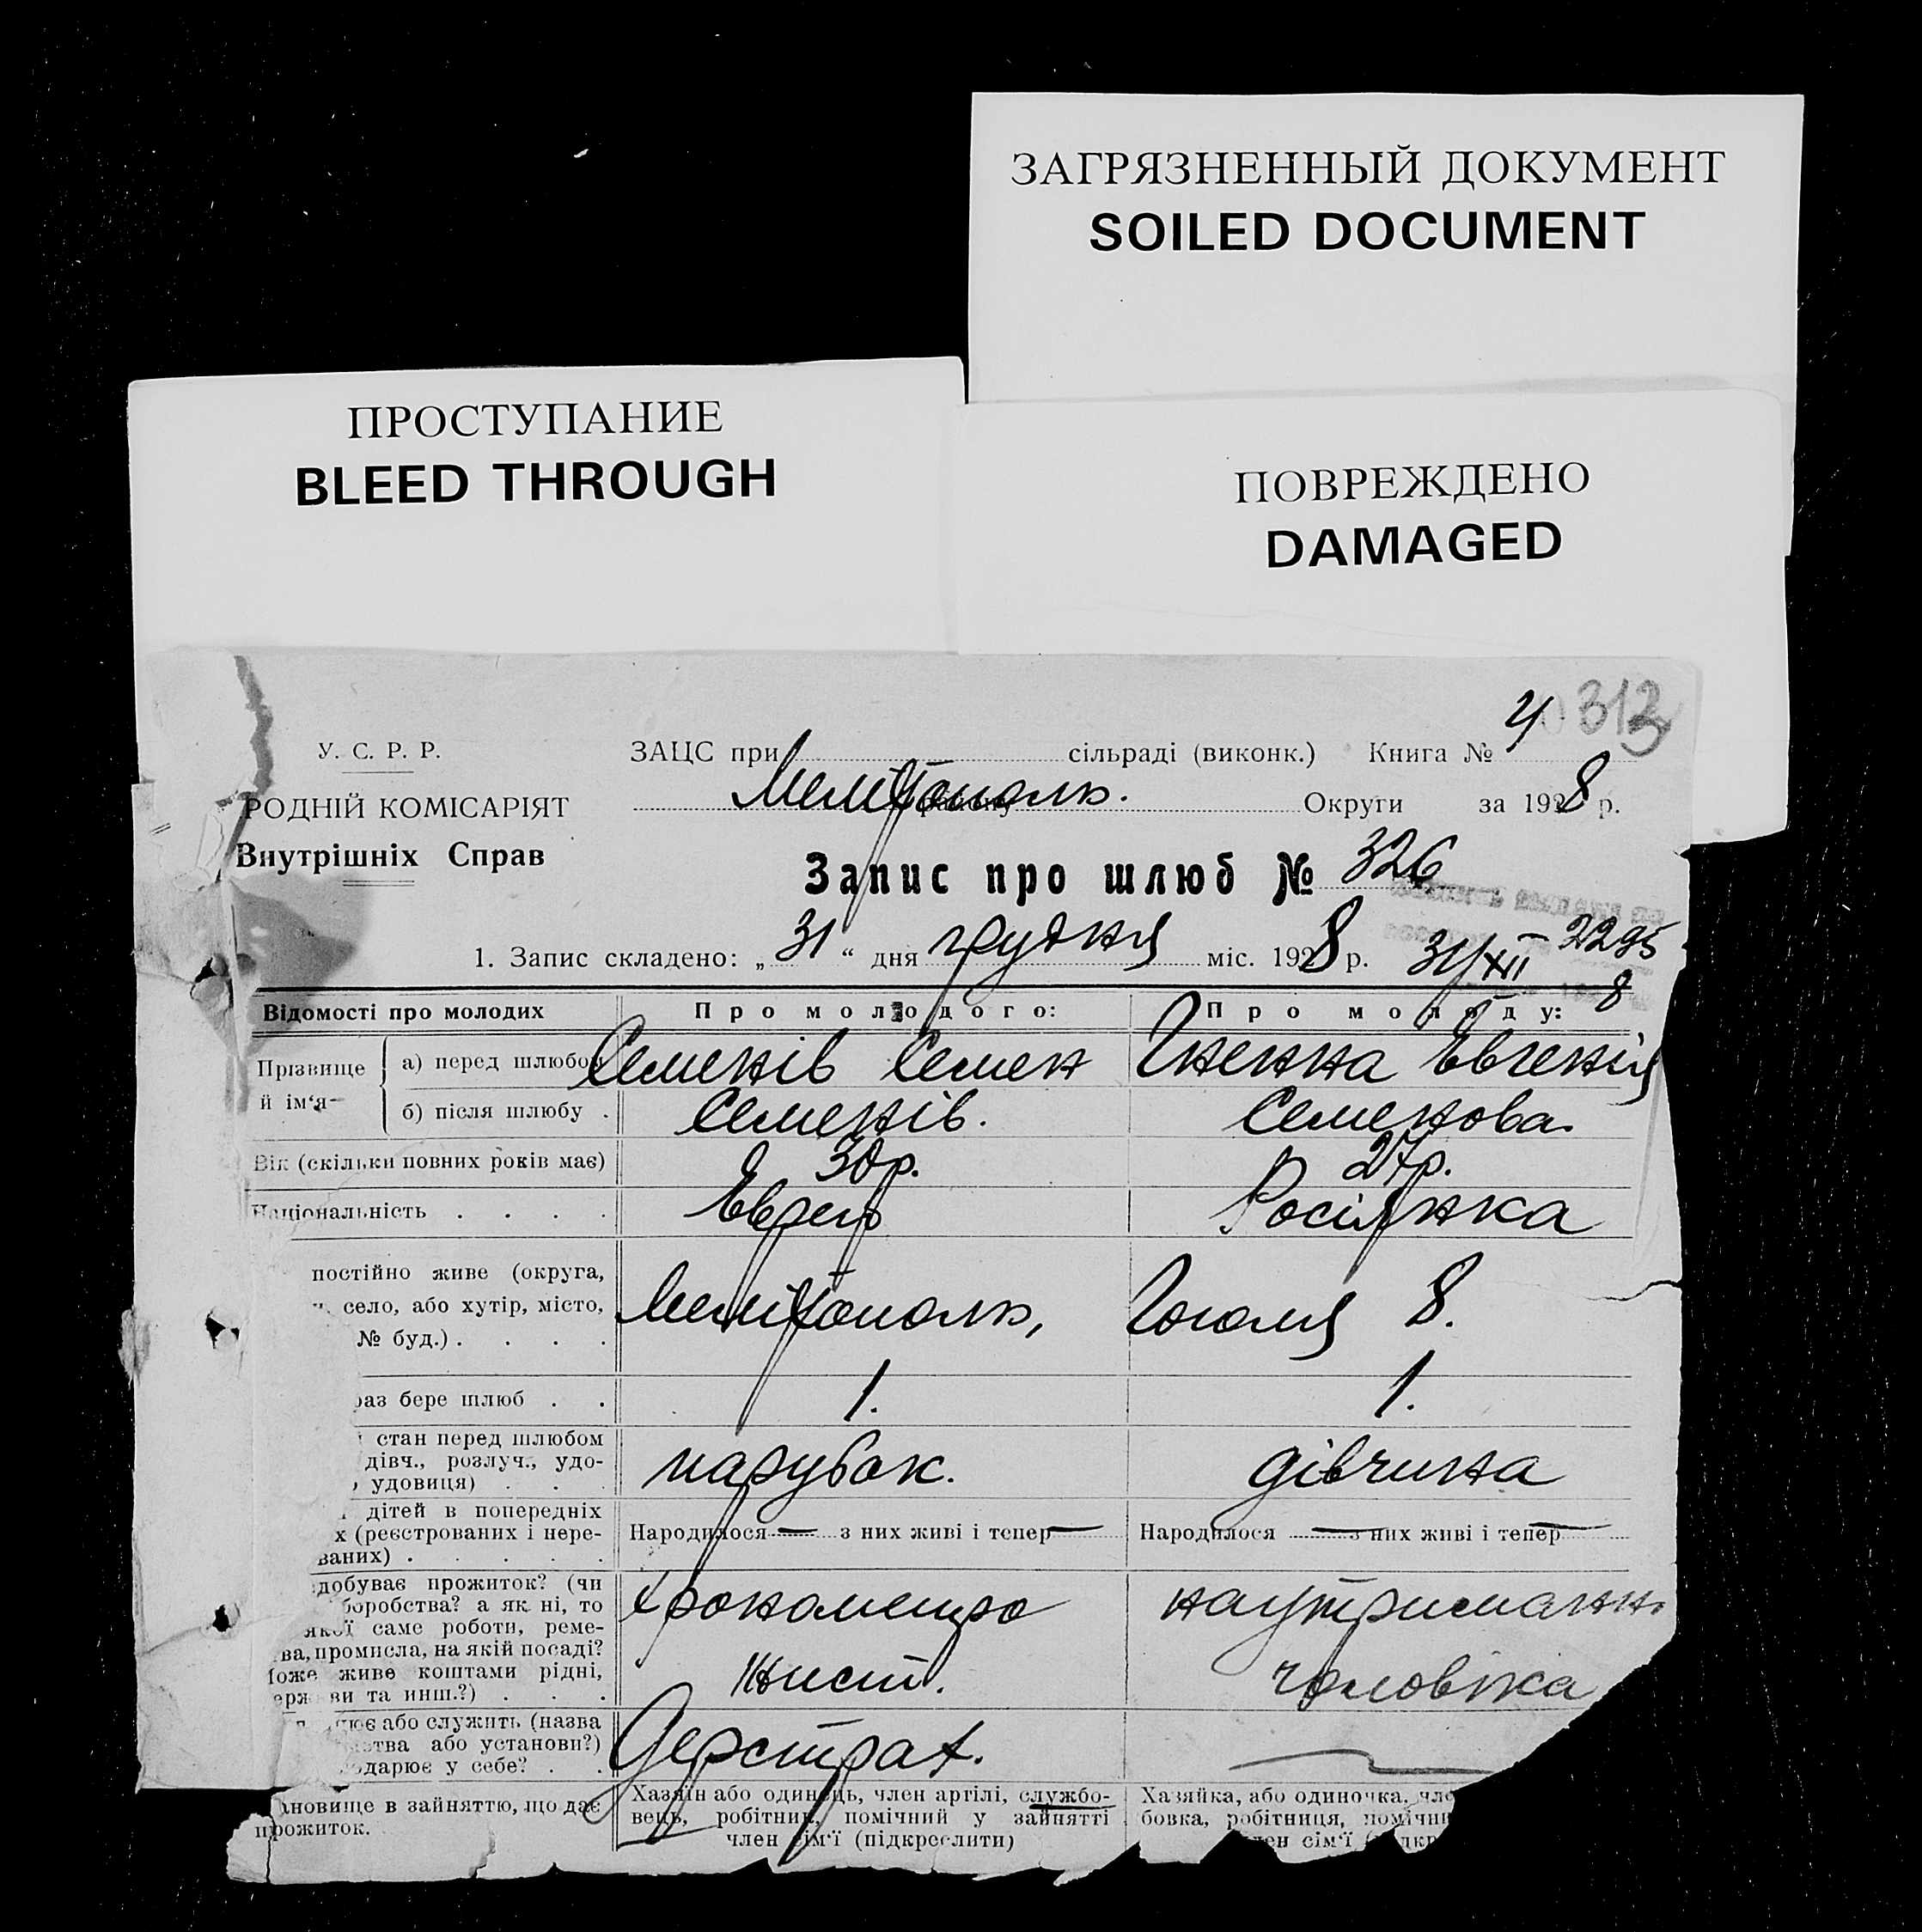 ЗАГРЯЗНЕННЫЙ ДОКУМЕНТ
SOILED DOCUMENT
ПРОСТУПАНИЕ
BLEED THROUGH
ПОВРЕЖДЕНО
DAMAGED
4 313
У. С. Р. Р.
ЗАЦС при сільраді (виконк.) Книга №
РОДНІЙ КОМІСАРІЯТ
Мелітополь. Округи за 1928 р.
Внутрішніх Справ
Запис про шлюб № 326
1. Запис складено: „31“ дня грудня міс. 1928 р. 31/XII 2295
8
Відомості про молодих Про молодого: Про молоду:
Прізвище й ім‘я
а) перед шлюбом Семенів Семен Євгенія
б) після шлюбу . Семенів. Семенова.
Вік (скільки повних років має) 30р. 24р.
Національність . . . . Еврей Росіянка
постійно живе (округа,
село, або хутір, місто,
№ буд.) . . . . Мелітополь, Гоголя 8.
раз бере шлюб . . 1. 1.
стан перед шлюбом
дівч., розлуч., удо-
удовиця) . . . парубок. дівчина
дітей в попередніх
х (реєстрованих і пере-
ваних) . . . . . Народилося — з них живі і тепер — Народилося — з них живі і тепер —
добуває прожиток? (чи
боробства? а як ні, то
якої саме роботи, реме-
ва, промисла, на якій посаді?
Може живе коштами рідні,
держави та инш.?) . . .
Хронометра
жист.
на утриманн.
чоловіка
або служить (назва
ства або установи?)
одарює у себе? . . Держстрах. —
ановище в зайняттю, що дає
прожиток.
Хазяїн або одинець, член артілі, службо-
вець, робітник, помічний у зайнятті
член сім‘ї (підкреслити)
Хазяйка, або одиночка, чле
бовка, робітниця, помічн
лен сім‘ї (підкр